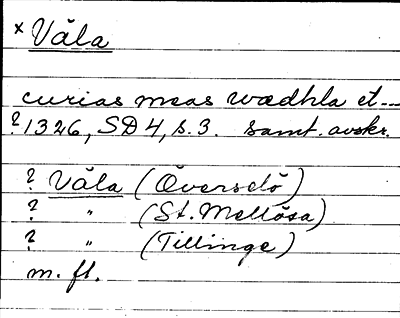 x Våla
curias meas wædhla et---
? 1326, SD 4, s. 3. samt. avskr.
? Våla (Överselö)
? " (St. Mellösa)
? " (Tillinge)
m. fl.